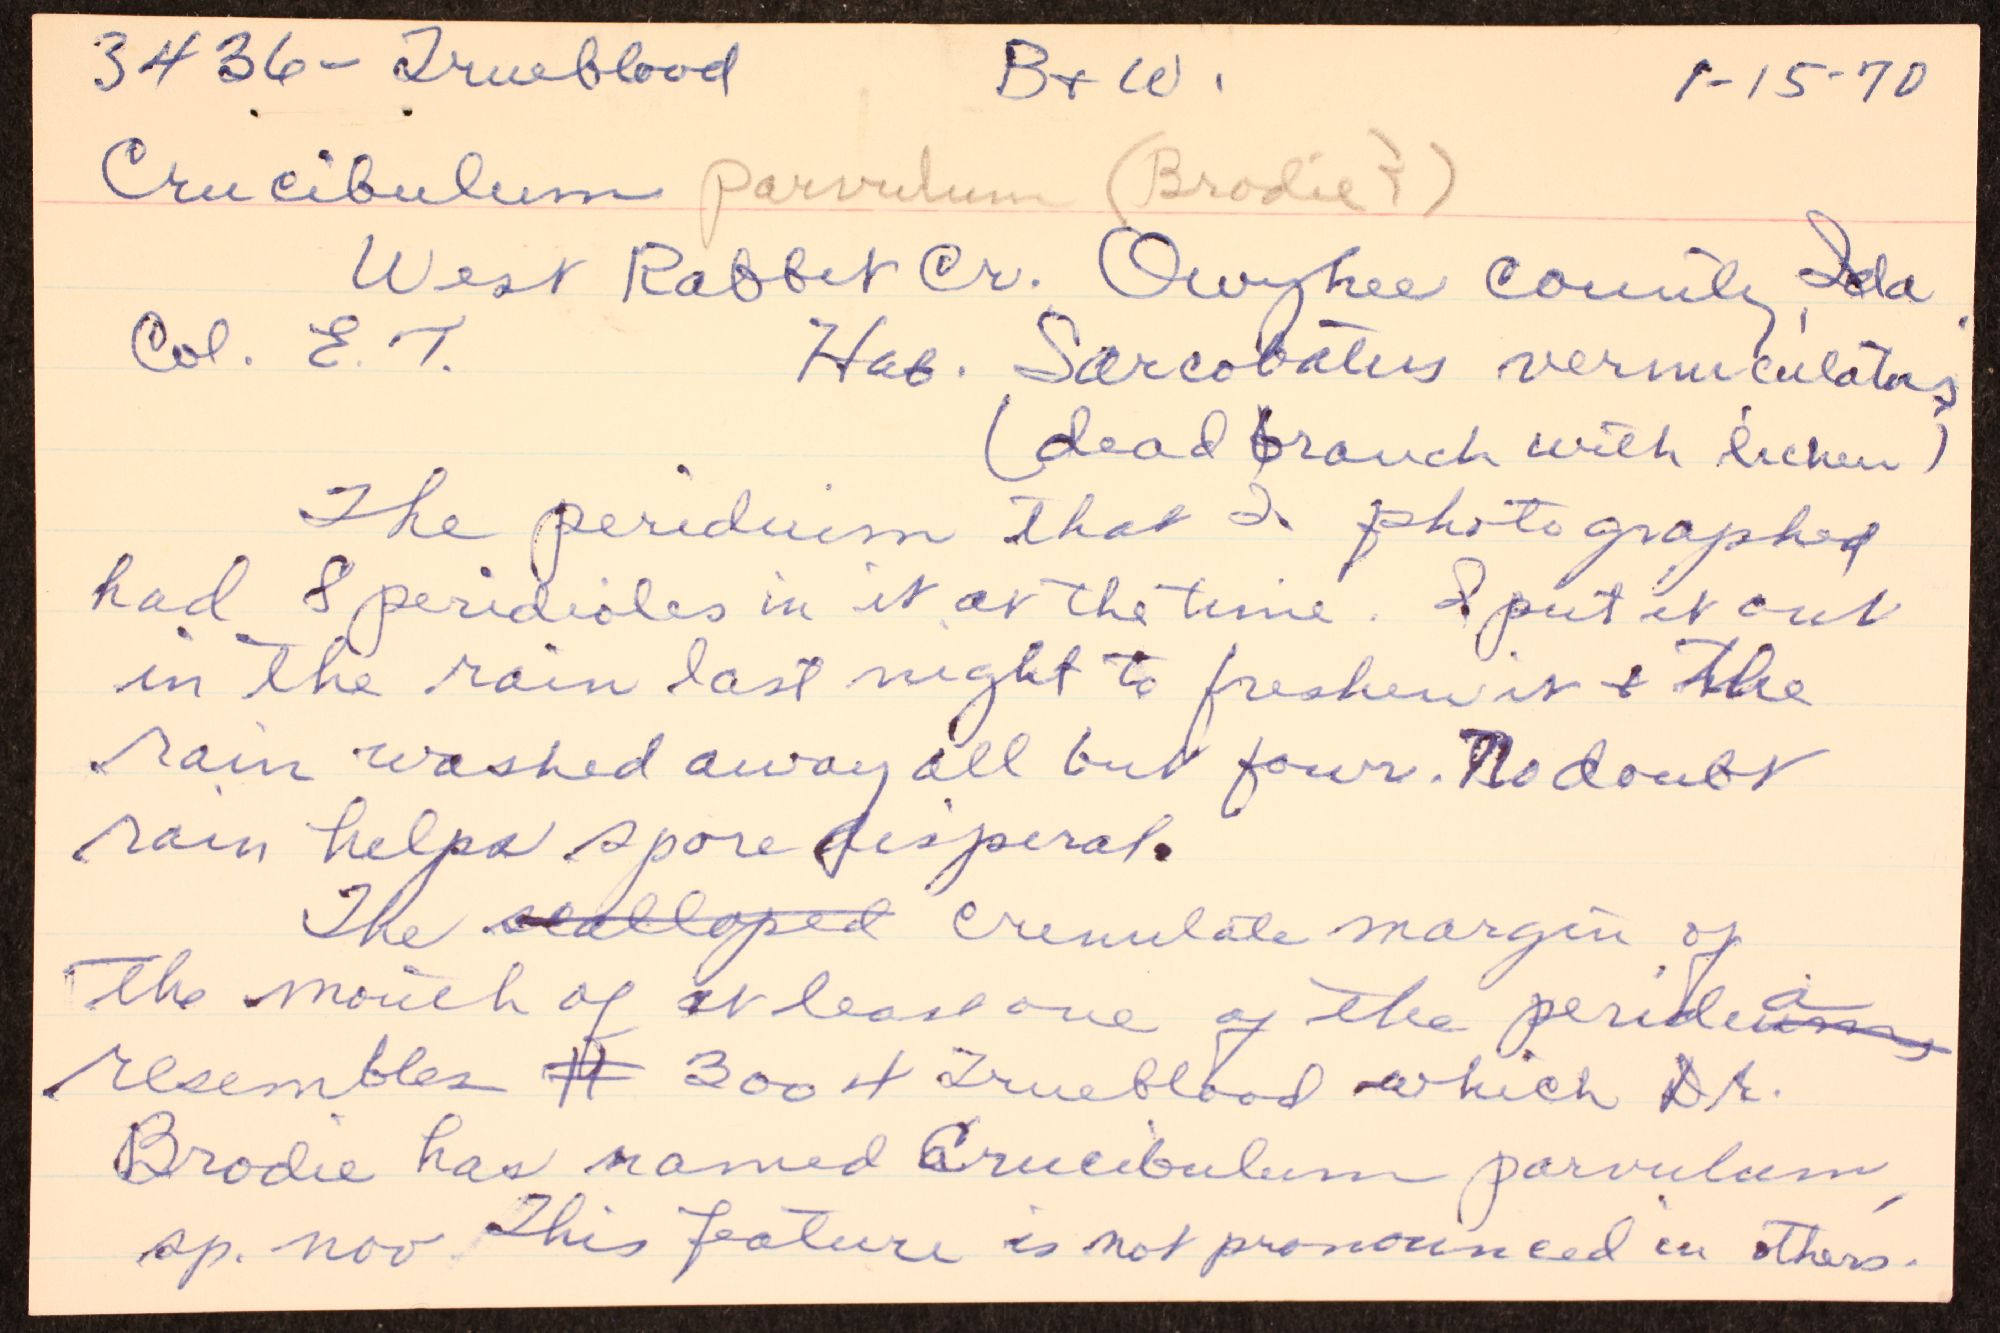 3436- Trueblood B+W. 1-15-70
Crucibulum parvulum (Brodie?)
West Rabbit Cr. Owyhee County, Ida.
Col. E. T. Hab. Sarcobatus vermiculatus
(dead branch with lichen)
The peridium that I photographed
had 8 peridioles in it at the time. I put it out
in the rain last night to freshen it + the
rain washed away all but four. No doubt
rain helps spore disperal.
The scalloped crenulate margin of
the mouth of at least one of the peridia
resembles # 3004 Trueblood which Dr.
Brodie has named Crucibulum parvulum,
sp. nov This feature is not pronounced in others.